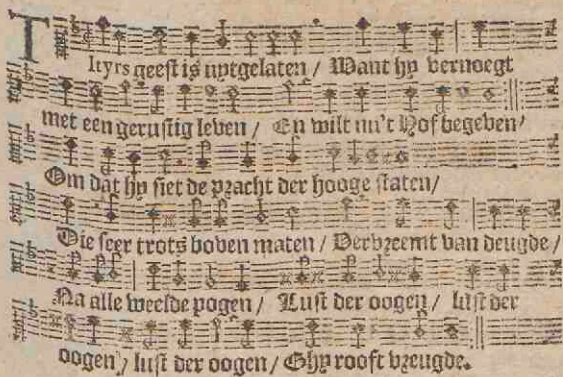 Tityrs geest is uytgelaten / Want hy vernoegt
met een gerustig leven / En wilt nu't Hof begeven/
Om dat hy siet de pracht der hooge staten/
Die seer trots boven maten / Vervreemt van deugde /
Na alle weelde pogen / Lust der oogen / lust der
oogen / lust der oogen / Ghy rooft vreugde.